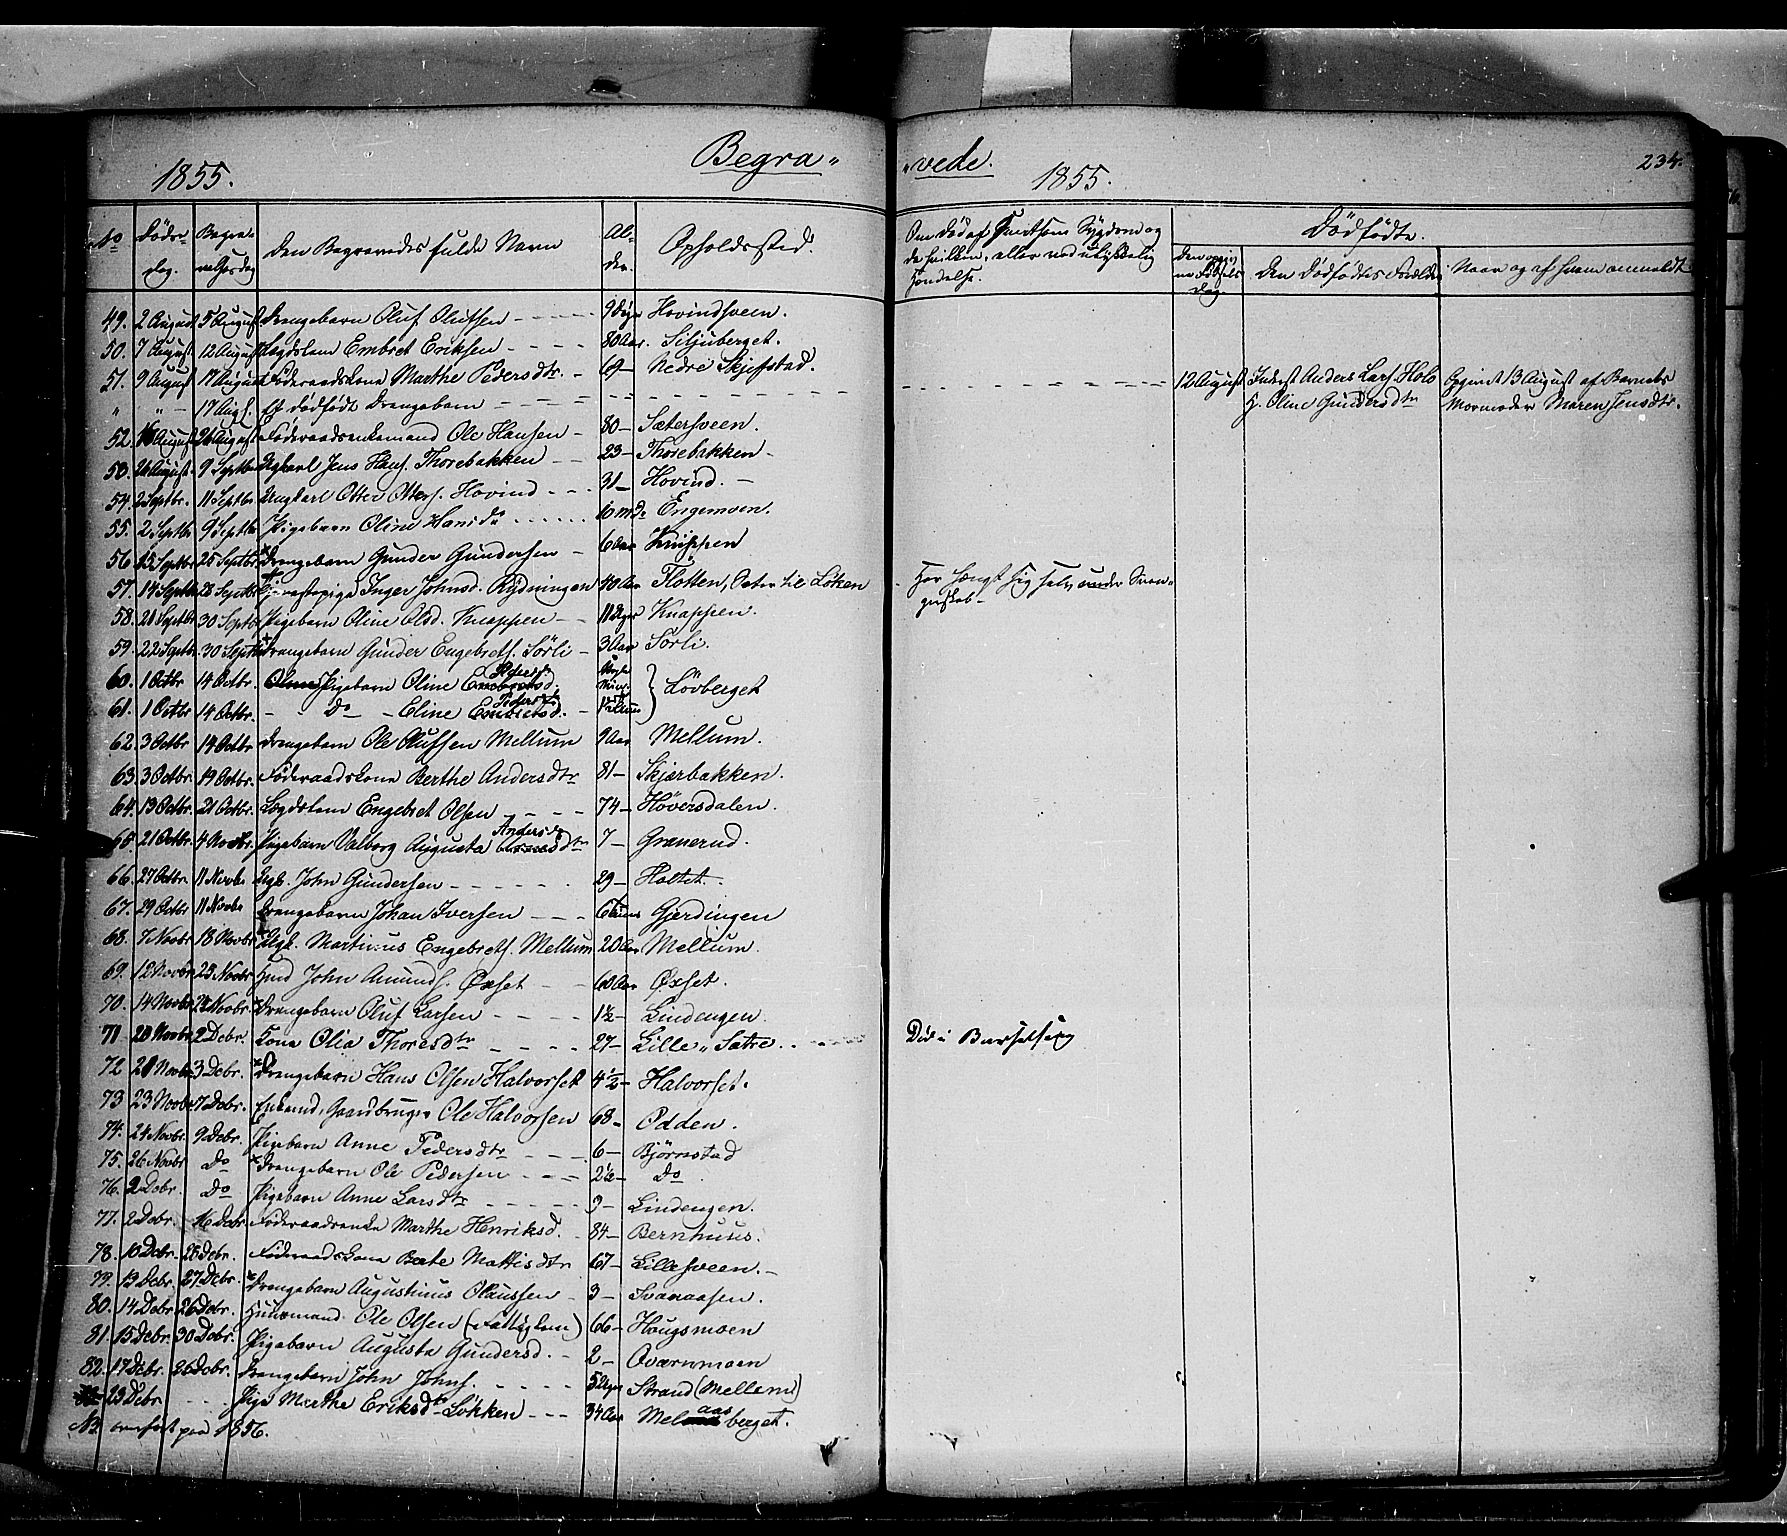 1855. Begra„ „vede. 1855. 234.
No Døds„ dag. Begra„ velsesdag Den Begravedes fulde Navn Al„ der. Opholdssted. Om Død af Smitsom Sygdom og de hvilken, eller ved ulykkelig Hændelse. Dødfødte. Fødsels Dag. Den Dødfødtes Forældre Naar og af hvem anmeldt
49. 2 August 5 August Drengebarn Oluf Olufsen 9 Dage Hovindsveen.
50. 7 August 12 August Lægdslem Embret Eriksen 80 Aar. Siljuberget.
51. 9 August 17 August Føderaadskone Marthe Pedersdtr. 69 Nedre Skjefstad.
„ „ 17 Aug. Et dødfødt Drengebarn 12 August Inderst Anders Lars. Holo Opgivet 13 August af Barnets
H. Oline Gundersdtr Mormoder Maren Jensdtr.
52. 16 August 26 August Føderaadsenkemand Ole Hansen 80 Sætersveen.
53. 26 August 9 Septbr Ungkarl Jens Hans. Thorebakken 23 Thorebakken
54. 2 Septbr. 11 Septbr Ungkarl Otter Otters. Hovind 31 Hovind.
55. 2 Septbr 9 Septbr Pigebarn Oline Hansd. 10 Md. Engemoen.
56. 15 Septbr 25 Septbr. Drengebarn Gunder Gundersen 6 Aar Knappen
57. 14 Septbr 28 Septbr Inger Johnsd. Rydningen 40 Aar Flotten, Øster til Løken Har hængt sig selv, under Svan„
gerskab
58. 21 Septbr 30 Septbr Pigebarn Oline Olsd. Knappen 11 Uger Knappen.
59. 22 Septbr. 30 Septbr Drengebarn Gunder Engebrets. Sørli 3 Aar Sørli.
60. 1 Octbr 14 Octbr. Pigebarn Oline Pedersd. } Løvberget
61. 1 Octbr 14 Octbr. Do Eline Pedersd.
62. 3 Octbr 14 Octbr Drengebarn Ole Olufsen Mellum 9 Aar Mellum.
63. 3 Octbr. 19 Octbr. Føderaadskone Berthe Andersdtr 81 Skjærbakken.
64. 13 Octbr. 21 Octbr. Lægdslem Engebret Olsen 74 Høversdalen.
65 21 Octbr. 4 Novbr. Pigebarn Valborg Augusta Andersd. 7 Granerud.
66. 27 Octbr. 11 Novbr Ugk. John Gundersen 29 Holtet.
67. 29 Octbr 11 Novbr Drengebarn Johan Iversen 6 Gjerdingen
68. 7 Novbr 18 Novbr Ugk. Martinus Engebrets. Mellum 20 Aar Mellum.
69. 12 Novbr 23 Novbr. John Amunds. Øxset 60 Aar Øxset.
70. 14 Novbr Novbr. Drengebarn Oluf Larsen 1½ Lindengen.
71 20 Novbr 2 Decbr. Kone Olia Thoresdtr 27 Lille„ Sætre Død i Barselseng
72 21 Novbr 3 Debr. Drengebarn Hans Olsen Halvorset 4½ Halvorset.
73 23 Novbr 7 Debr. Enkemd. Gaardbruger Ole Halvorsen 68 Odden.
74. 24 Novbr. 9 Debr. Pigebarn Anne Pedersdtr 6 Bjørnstad
75. 26 Novbr Do Drengebarn Ole Pedersen 2½ Do
76. 2 Debr. Do Pigebarn Anne Larsdtr 9 Lindengen.
77. 2 Debr. 16 Debr. Føderaadsenke Marthe Henriksd. 84 Bernhuus.
78. 10 Debr. 28 Debr. Føderaadskone Beate Mattisdtr 67 Lillesveen.
79. 13 Debr. 27 Debr. Drengebarn Augustinus Olaussen 3 Svanaasen.
80. 14 Debr 26 Debr. Huusmand Ole Olsen (Fattiglem) 66 Haugsmoen
81. 15 Debr. 30 Debr. Pigebarn Augusta Gundersd. 2 Qværnmoen
82. 17 Debr. 26 Debr. Drengebarn John Johns. 5 Uger Strand (Mellem)
23 Debr Pige Marthe Eriksdtr Løkken 34 Aar Melaasberget.
NB. overført paa 1856.